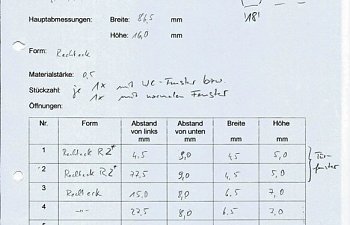 '18'
Hauptabmessungen: Breite: 86,5 mm
Höhe: 16,0 mm
Form: Rechteck
Materialstärke: 0,5
Stückzahl: je 1x mit WC-Fenster bzw.
1x mit normalen Fenster
Öffnungen:
Nr. Form Abstand von links mm Abstand von unten mm Breite mm Höhe mm
1 Rechteck R2* 4,5 9,0 4,5 5,0
2 Rechteck R2* 77,5 9,0 4,5 5,0
Türfenster
3 Rechteck 15,0 8,0 6,5 7,0
4 -"- 27,5 8,0 6,5 7,0